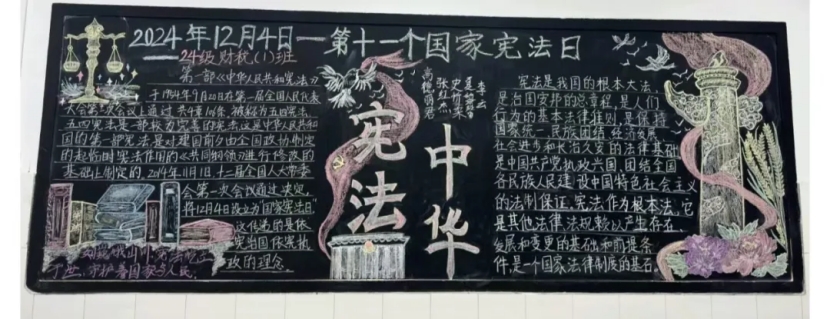 2024年12月4日一第十一个国家宪法日
24级财税(1)班
第一部《中华人民共和宪法》
于1954年9月20日在第一届全国人民代表
大会第一次会议上通过 共4章106条 被称为五四宪法.
五四宪法是一部较为完善的宪法,这是中华人民共和
国的第一部宪法是对建国前夕由全国政协制定
的起临时宪法作用的《共同纲领》进行修改的
基础上制定的. 2014年11月1日,十二届全国人大常委
会第一次会议通过决定,
将12月4日设立为"国家宪法日"
这传递的是依
宪治国依宪执
政的理念.
宪法
中华
宪法是我国的根本大法,
是治国安邦的总章程,是人们
行为的基本法律准则,是保持
国家统一民族团结 经济发展
社会进步和长治久安的法律基础
是中国共产党执政兴国,团结全国
各民族人民建设中国特色社会主义
的法制保证.宪法作为根本法,它
是其他法律法规赖以产生存在、
发展和变更的基础和前提条
件,是一个国家法律制度的基石.
守护着国家与人民.